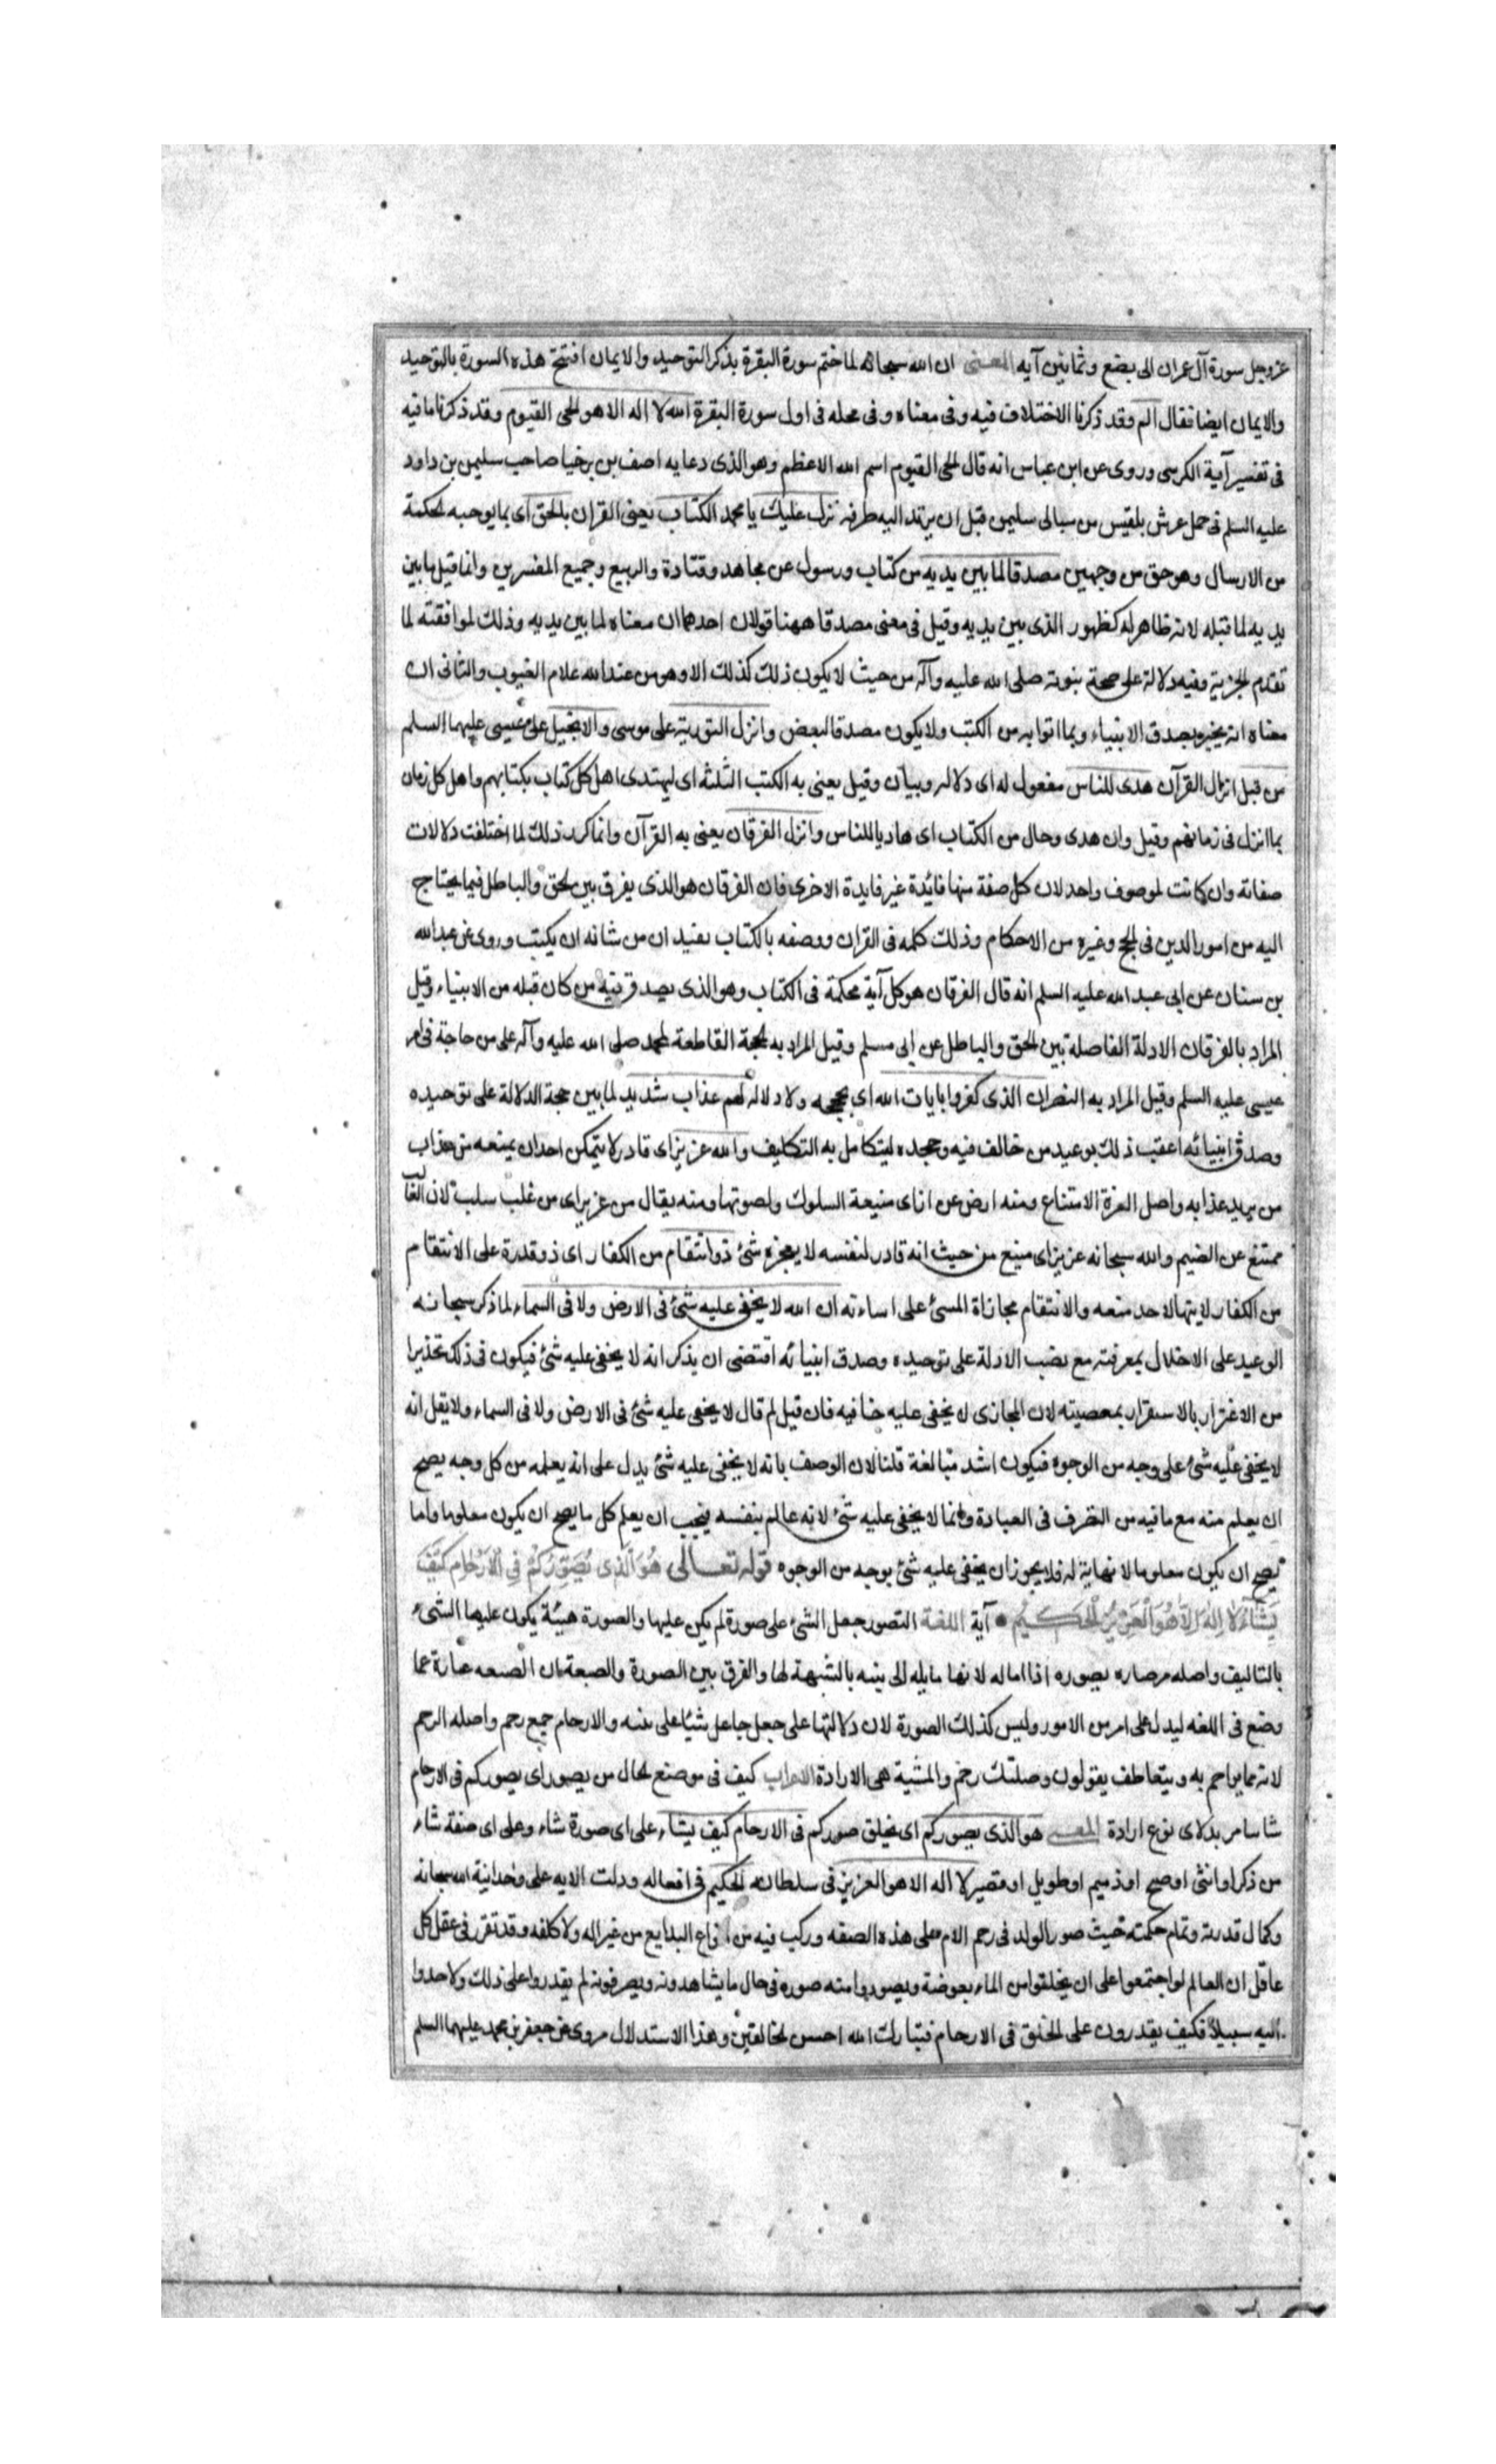 عز وجل سورة آل عمران الى بضع وثمانين آيه المعنى ان الله سبحانه لما ختم سورة البقرة بذكر التوحيد والايمان افتتح هذه السورة بالتوحيد
والايمان ايضا فقال الم وقد ذكرنا الاختلاف فيه وفى معناه وفى محله فى اول سورة البقرة الله لا اله الا هو الحى القيوم وقد ذكرنا ما فيه
فى تفسير آية الكرسى وروى عن ابن عباس انه قال الحى القيوم اسم الله الاعظم وهو الذى دعا به اصف بن برخيا صاحب سليمن بن داود
عليه السلم فى حمل عرش بلقيس من سبا الى سليمن قبل ان يرتد اليه طرفه نزل عليك يا محمد الكتاب يعنى القران بالحق اى بما يوجبه الحكمة
من الارسال وهو حق من وجهين مصدقا لما بين يديه من كتاب ورسول عن مجاهد وقتادة والربيع وجميع المفسرين وانما قيل ما بين
يديه لما قبله لانه ظاهر له كظهور الذى بين يديه وقيل فى معنى مصدقا ههنا قولان احدهما ان معناه لما بين يديه وذلك لموافقته لما
تقدم الخبر به وفيه دلالة على صحة نبوته صلى الله عليه وآله من حيث لا يكون ذلك كذلك الا وهو من عند الله علام الغيوب والثانى ان
معناه انه يخبر بصدق الانبياء وبما اتوا به من الكتب ولا يكون مصدقا لبعض وانزل التورية على موسى والانجيل على عيسى عليهما السلم
من قبل انزال القرآن هدى للناس مفعول له اى دلاله وبيان وقيل يعنى به الكتب الثلثه اى ليهتدى اهل كل كتاب بكتابهم واهل كل زمان
بما انزل فى زمانهم وقيل وان هدى وحال من الكتاب اى هاديا للناس وانزل الفرقان يعنى به القرآن وانما كرر ذلك لما اختلفت دلالات
صفاته وان كانت لموصوف واحد لان كل صفة منها فائدة غير فايدة الاخرى فان الفرقان هو الذى يفرق بين الحق والباطل فيما يحتاج
اليه من امور الدين فى الحج وغيره من الاحكام وذلك كله فى القران ووصفه بالكتاب يفيد ان من شانه ان يكتب وروى عن عبد الله
بن سنان عن ابى عبد الله عليه السلم انه قال الفرقان هو كل آية محكمة فى الكتاب وهو الذى يصدق فيه من كان قبله من الانبياء وقيل
المراد بالفرقان الادلة الفاصلة بين الحق والباطل عن ابى مسلم وقيل المراد به الحجة القاطعة لمحمد صلى الله عليه وآله على من حاجه فى امر
عيسى عليه السلم وقيل المراد به النصران الذى كفروا بايات الله اى بحججه ولا دلاله لهم عذاب شديد لما بين حجة الدلالة على توحيده
وصدق انبيائه اعقب ذلك بوعيد من خالف فيه وجحده ليتكامل به التكليف والله عزيز اى قادر لا يتمكن احد ان يمنعه من عذاب
من يريد عذابه واصل العزة الامتناع ومنه ارض عزاز اى منيعة السلوك ولصوتها ومنه يقال من عز بز اى من غلب سلب لان الغالب
ممتنع عن الضيم والله سبحانه عزيز اى منيع من حيث انه قادر لنفسه لا يعجزه شئ ذو انتقام من الكفار اى ذو قدرة على الانتقام
من الكفار لا يتها لاحد منعه والانتقام مجازاة المسئ على اساءته ان الله لا يخفى عليه شئ فى الارض ولا فى السماء لما ذكر سبحانه
الوعيد على الاخلال بمعرفته مع نصب الادلة على توحيده وصدق انبيائه اقتضى ان يذكر انه لا يخفى عليه شئ فيكون فى ذلك تحذيرا
من الاغترار بالاستقرار بمعصيته لان المجازى لا يخفى عليه خافيه فان قيل لم قال لا يخفى عليه شئ فى الارض ولا فى السماء ولا يقل انه
لا يخفى عليه شئ على وجه من الوجوه فيكون اشد مبالغة قلنا لان الوصف بانه لا يخفى عليه شئ يدل على انه يعلمه من كل وجه يصح
ان يعلم منه مع ما فيه من التصرف فى العبادة وانما لا يخفى عليه شئ لانه عالم بنفسه فيجب ان يعلم كل ما يصح ان يكون معلوما واما
يصح ان يكون معلوما لا نهاية له فلا يجوز ان يخفى عليه شئ بوجه من الوجوه قوله تعالى هُوَ الَّذِى يُصَوِّرُكُمْ فِى الْاَرْحَامِ كَيْفَ
يَشَآءُ لَا اِلٰهَ اِلَّا هُوَ الْعَزِيْزُ الْحَكِيمُ آية اللغة التصور جعل الشئ على صورة لم يكن عليها والصورة هيئة يكون عليها الشئ
بالتاليف واصله من صاره يصوره اذا اماله لانها مايله الى بنيه بالشبهة لها والفرق بين الصورة والصيغة ان الصيغه عبارة عما
وضع فى اللغه ليدل على امر من الامور وليس كذلك الصورة لان دلالتها على جعل جاعل شيئا على بنيه والارحام جمع رحم واصله الرحم
لانه مما يتراحم به ويتعاطف يقولون وصلتك رحم والمشية هى الارادة الاعراب كيف فى موضع الحال من يصور اى يصوركم فى الارحام
شاء المعنى هو الذى يصوركم اى يخلق صوركم فى الارحام كيف يشاء على اى صورة شاء وعلى اى صفة شاء
من ذكر او انثى او صبيح او ذميم او طويل او قصير لا اله الا هو العزيز فى سلطانه الحكيم فى افعاله ودلت الايه على وحدانية الله سبحانه
وكمال قدرته وتمام حكمته حيث صور الولد فى رحم الام على هذه الصفه وركب فيه من انواع البدايع من غير اله ولا كلفه وقد تقرر فى عقل كل
عاقل ان العالم لو اجتمعوا على ان يخلقوا من الماء بعوضة ويصوروا منه صوره فى حال ما يشاهدونه ويعرفونه لم يقدروا على ذلك ولا وجدوا
اليه سبيلا فكيف يقدرون على الخلق فى الارحام فتبارك الله احسن الخالقين وهذا الاستدلال مروى عن جعفر بن محمد عليهما السلم